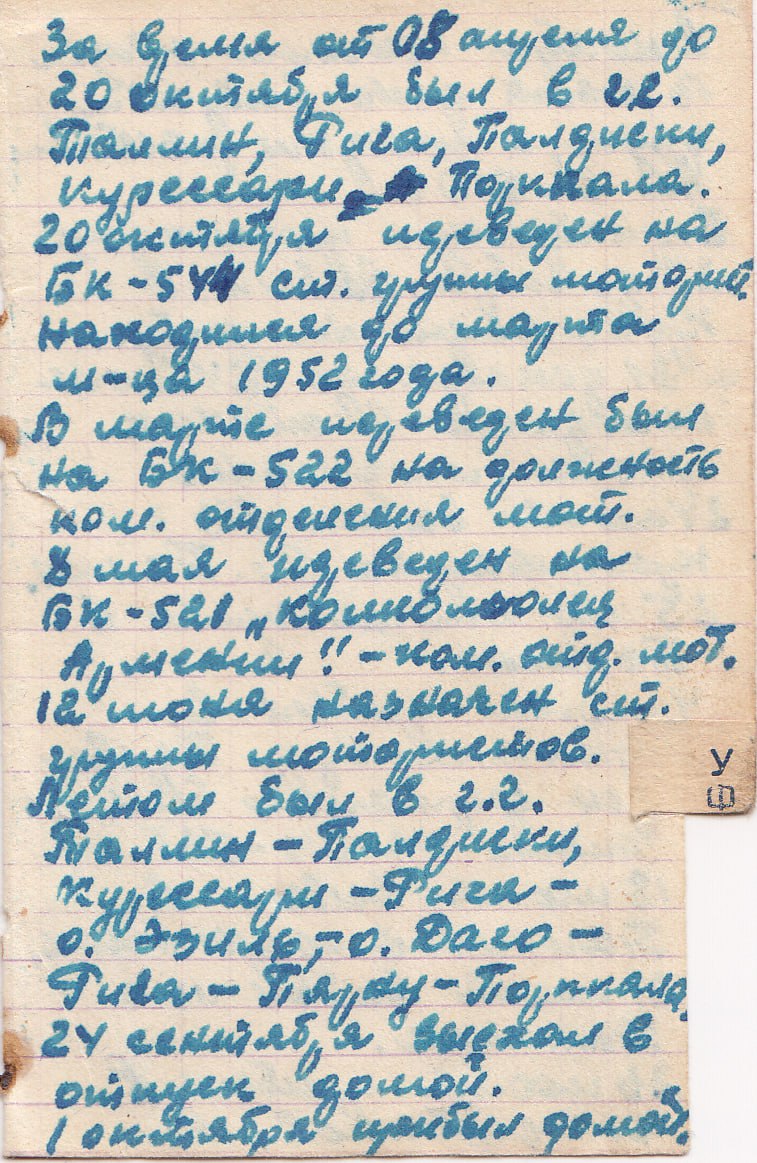 За время от 08 апреля до
20 октября был в г.г.
Таллин, Рига, Палдиски,
Курессари, Порккала.
20 октября переведен на
БК-544 ст. группы моторист.
Находился до марта
м-ца 1952 года.
В марте переведен был
на БК-522 на должность
ком. отделения мот.
8 мая переведен на
БК-521 „Комсомолец
Армении" - ком. отд. мот.
12 июня назначен ст.
группы мотористов.
Летом был в г.г.
Таллин - Палдиски,
Курессари - Рига -
о. Эзиль, - о. Даго -
Рига - Пярну - Порккала,
24 сентября выехал в
отпуск домой.
1 октября прибыл домой.
У
Ф